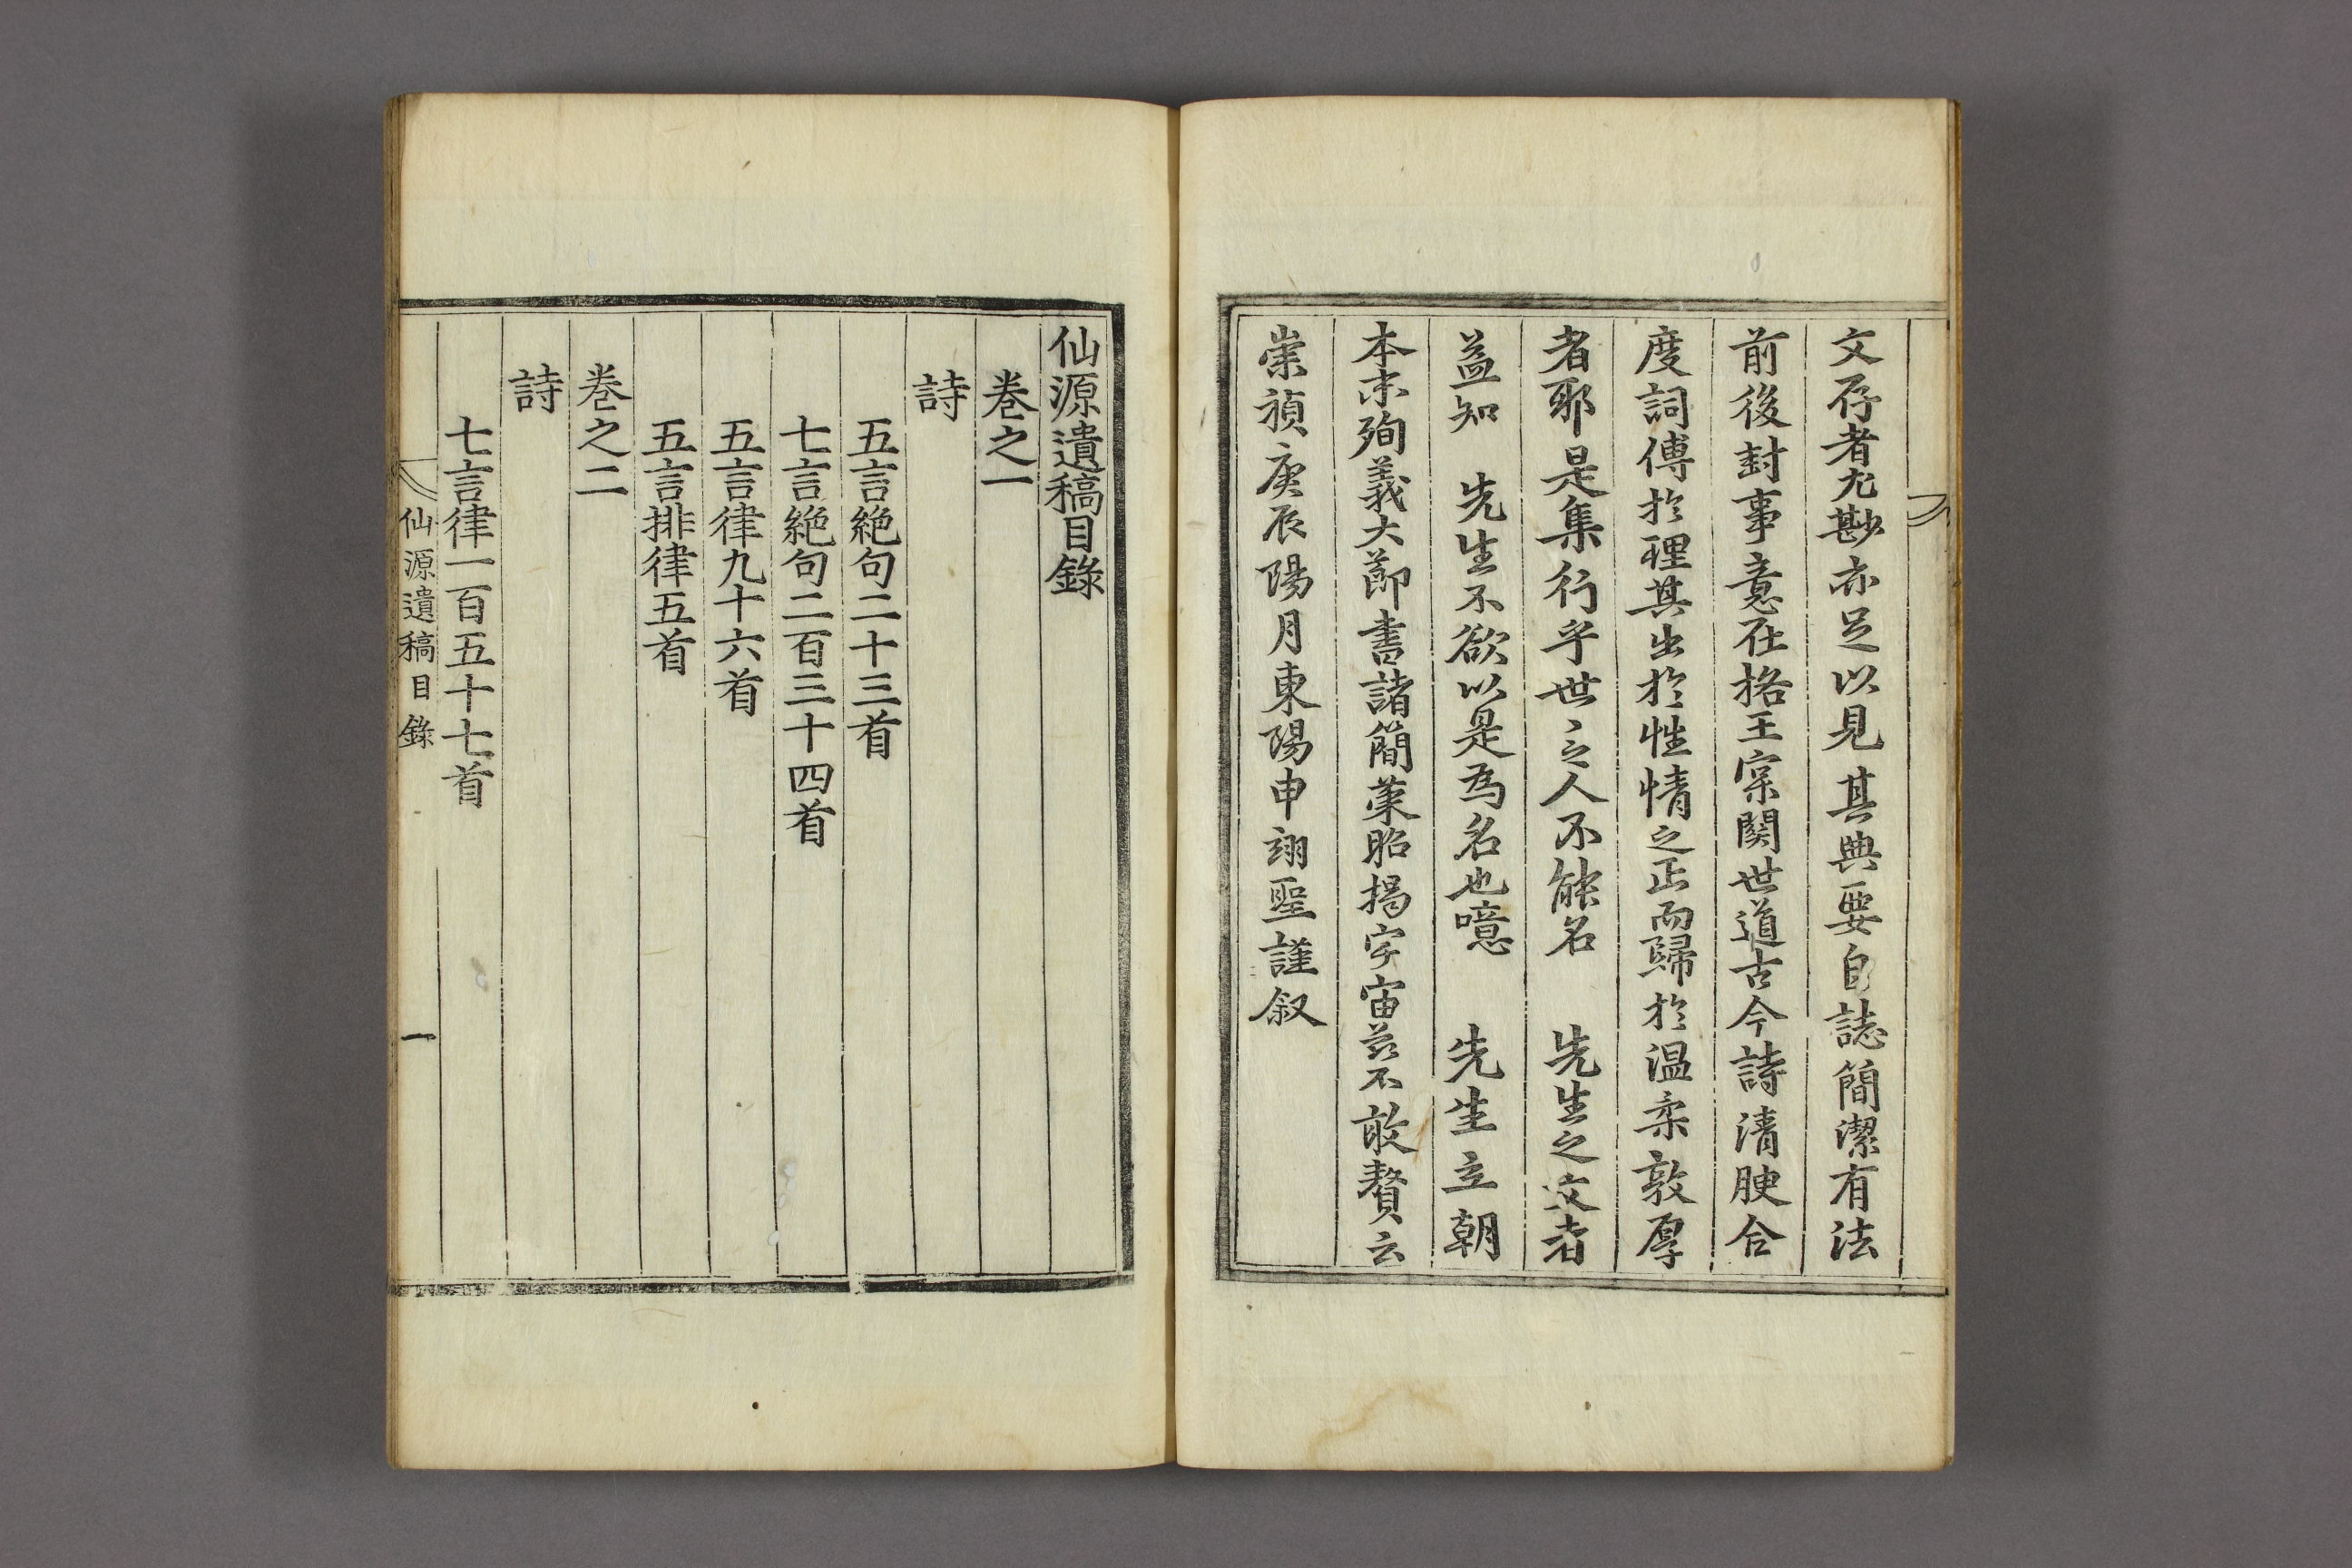 文存者尤尠亦足以見其典要自誌簡潔有法
前後封事意在格王宲關世道古今詩清腴合
度詞傅於理其出於性情之正而歸於温柔敦厚
者耶是集行乎世之人不能名 先生之文者
益知 先生不欲以是為名也噫 先生立朝
本末殉義大節書諸簡策昭揭宇宙玆不敢贅云
崇禎庚辰陽月東陽申翊聖謹叙
仙源遺稿目錄
卷之一
詩
五言絶句二十三首
七言絶句二百三十四首
五言律九十六首
五言排律五首
卷之二
詩
七言律一百五十七首
仙源遺稿目錄 一